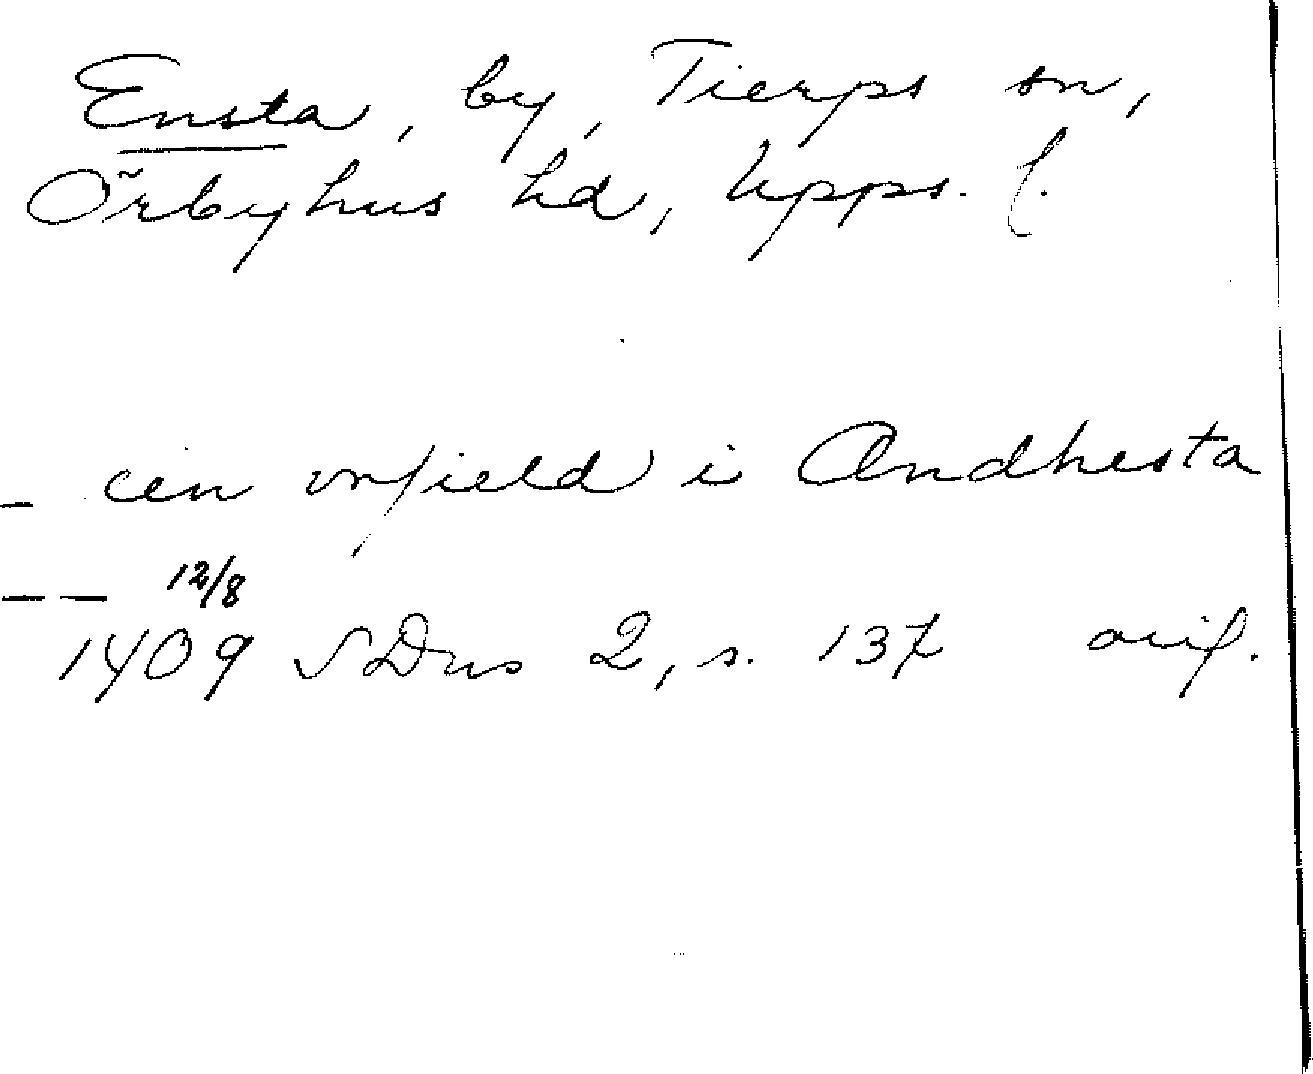 Ensta, by, Tierps sn,
Örbyhus hd, Upps. l.
– een vrfield i Andhesta
– – 12/8
1409 SDns 2, s. 137 avif.